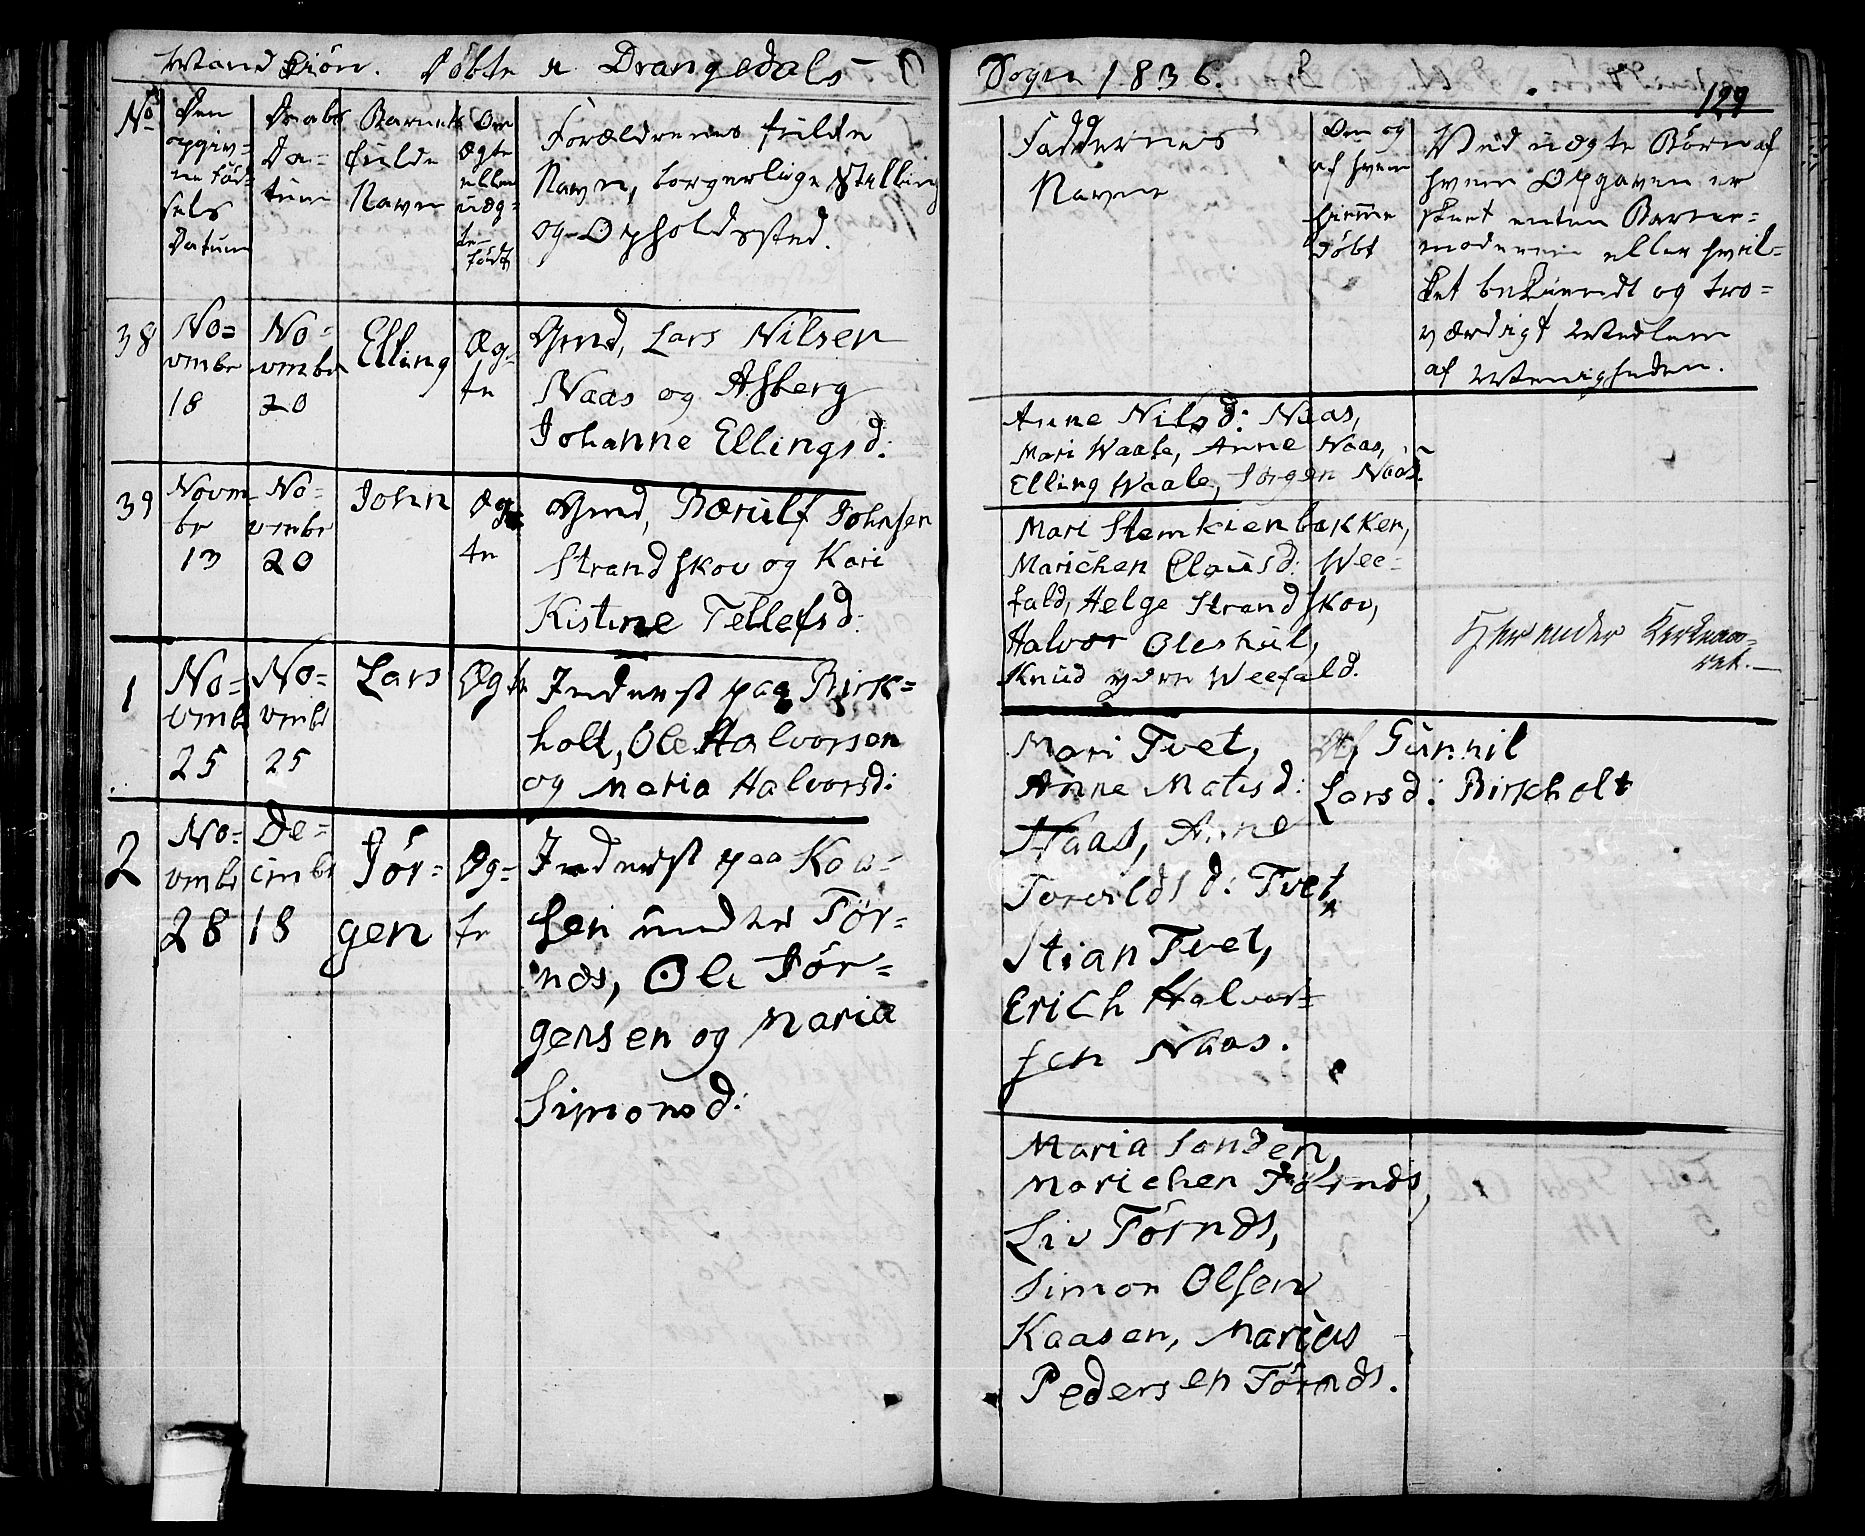 Mandkiön. Döbte i Drangedals
No
Den opgiv=
ne Föd=
sels
Datum
Daabs
Da=
tum
Barnets
fulde
Navn
Om
Ægte
eller
uæg=
te
födt
Forældrenes fulde
Navn, borgerlige Stilling
og Opholdssted.
38
No=
vmbr
18
No=
vmbr
20
Elling
Æg=
te
Gmd, Lars Nilsen
Naas og Asberg
Johanne Ellingsd:
39
Novm
br
13
No=
vmbr
20
John
Æg
te
Gmd, Bærulf Johnsen
Strandskov og Kari
Kistine Tellefsd:
1
No=
vmbr
25
No=
vmbr
25
Lars
Ægte
Inderst paa Birk=
holt, Ole Halvorsen
og Maria Halvorsd:
2
No=
vmbr
28
De=
cmbr
18
Jör=
gen
Æg=
te
Inderst paa Kaa=
sen under Tör=
nes, Ole Jör=
gensen og Maria
Simonsd:
Sogn 1836.
129
Faddernes
Navne
Om og
af hvem
hjemme
döbt
Ved uægte Börn af
hvem Opgaven er
skeet enten Barne=
moderen eller hvil=
ket bekiendt og tro=
værdigt Medlem
af Menigheden.
Anne Nilsd: Naas,
Mari Waale, Anne Naas,
Elling Waale, Jörgen Naas.
Mari Stemkienbakken,
Marichen Clausd: Wee=
fald, Helge Strandskov,
Halvor Oleshul,
Knud Weefald.
Mari Tvet,
Anne Matisd:
Naas, Anne
Torvildsd: Tvet,
Stian Tvet,
Erich Halvor=
sen Naas.
Af Gunnil
Larsd: Birkholt
Maria Sanden,
Marichen Törnes,
Liv Törnes,
Simon Olsen
Kaasen, Marius
Pedersen Törnes.